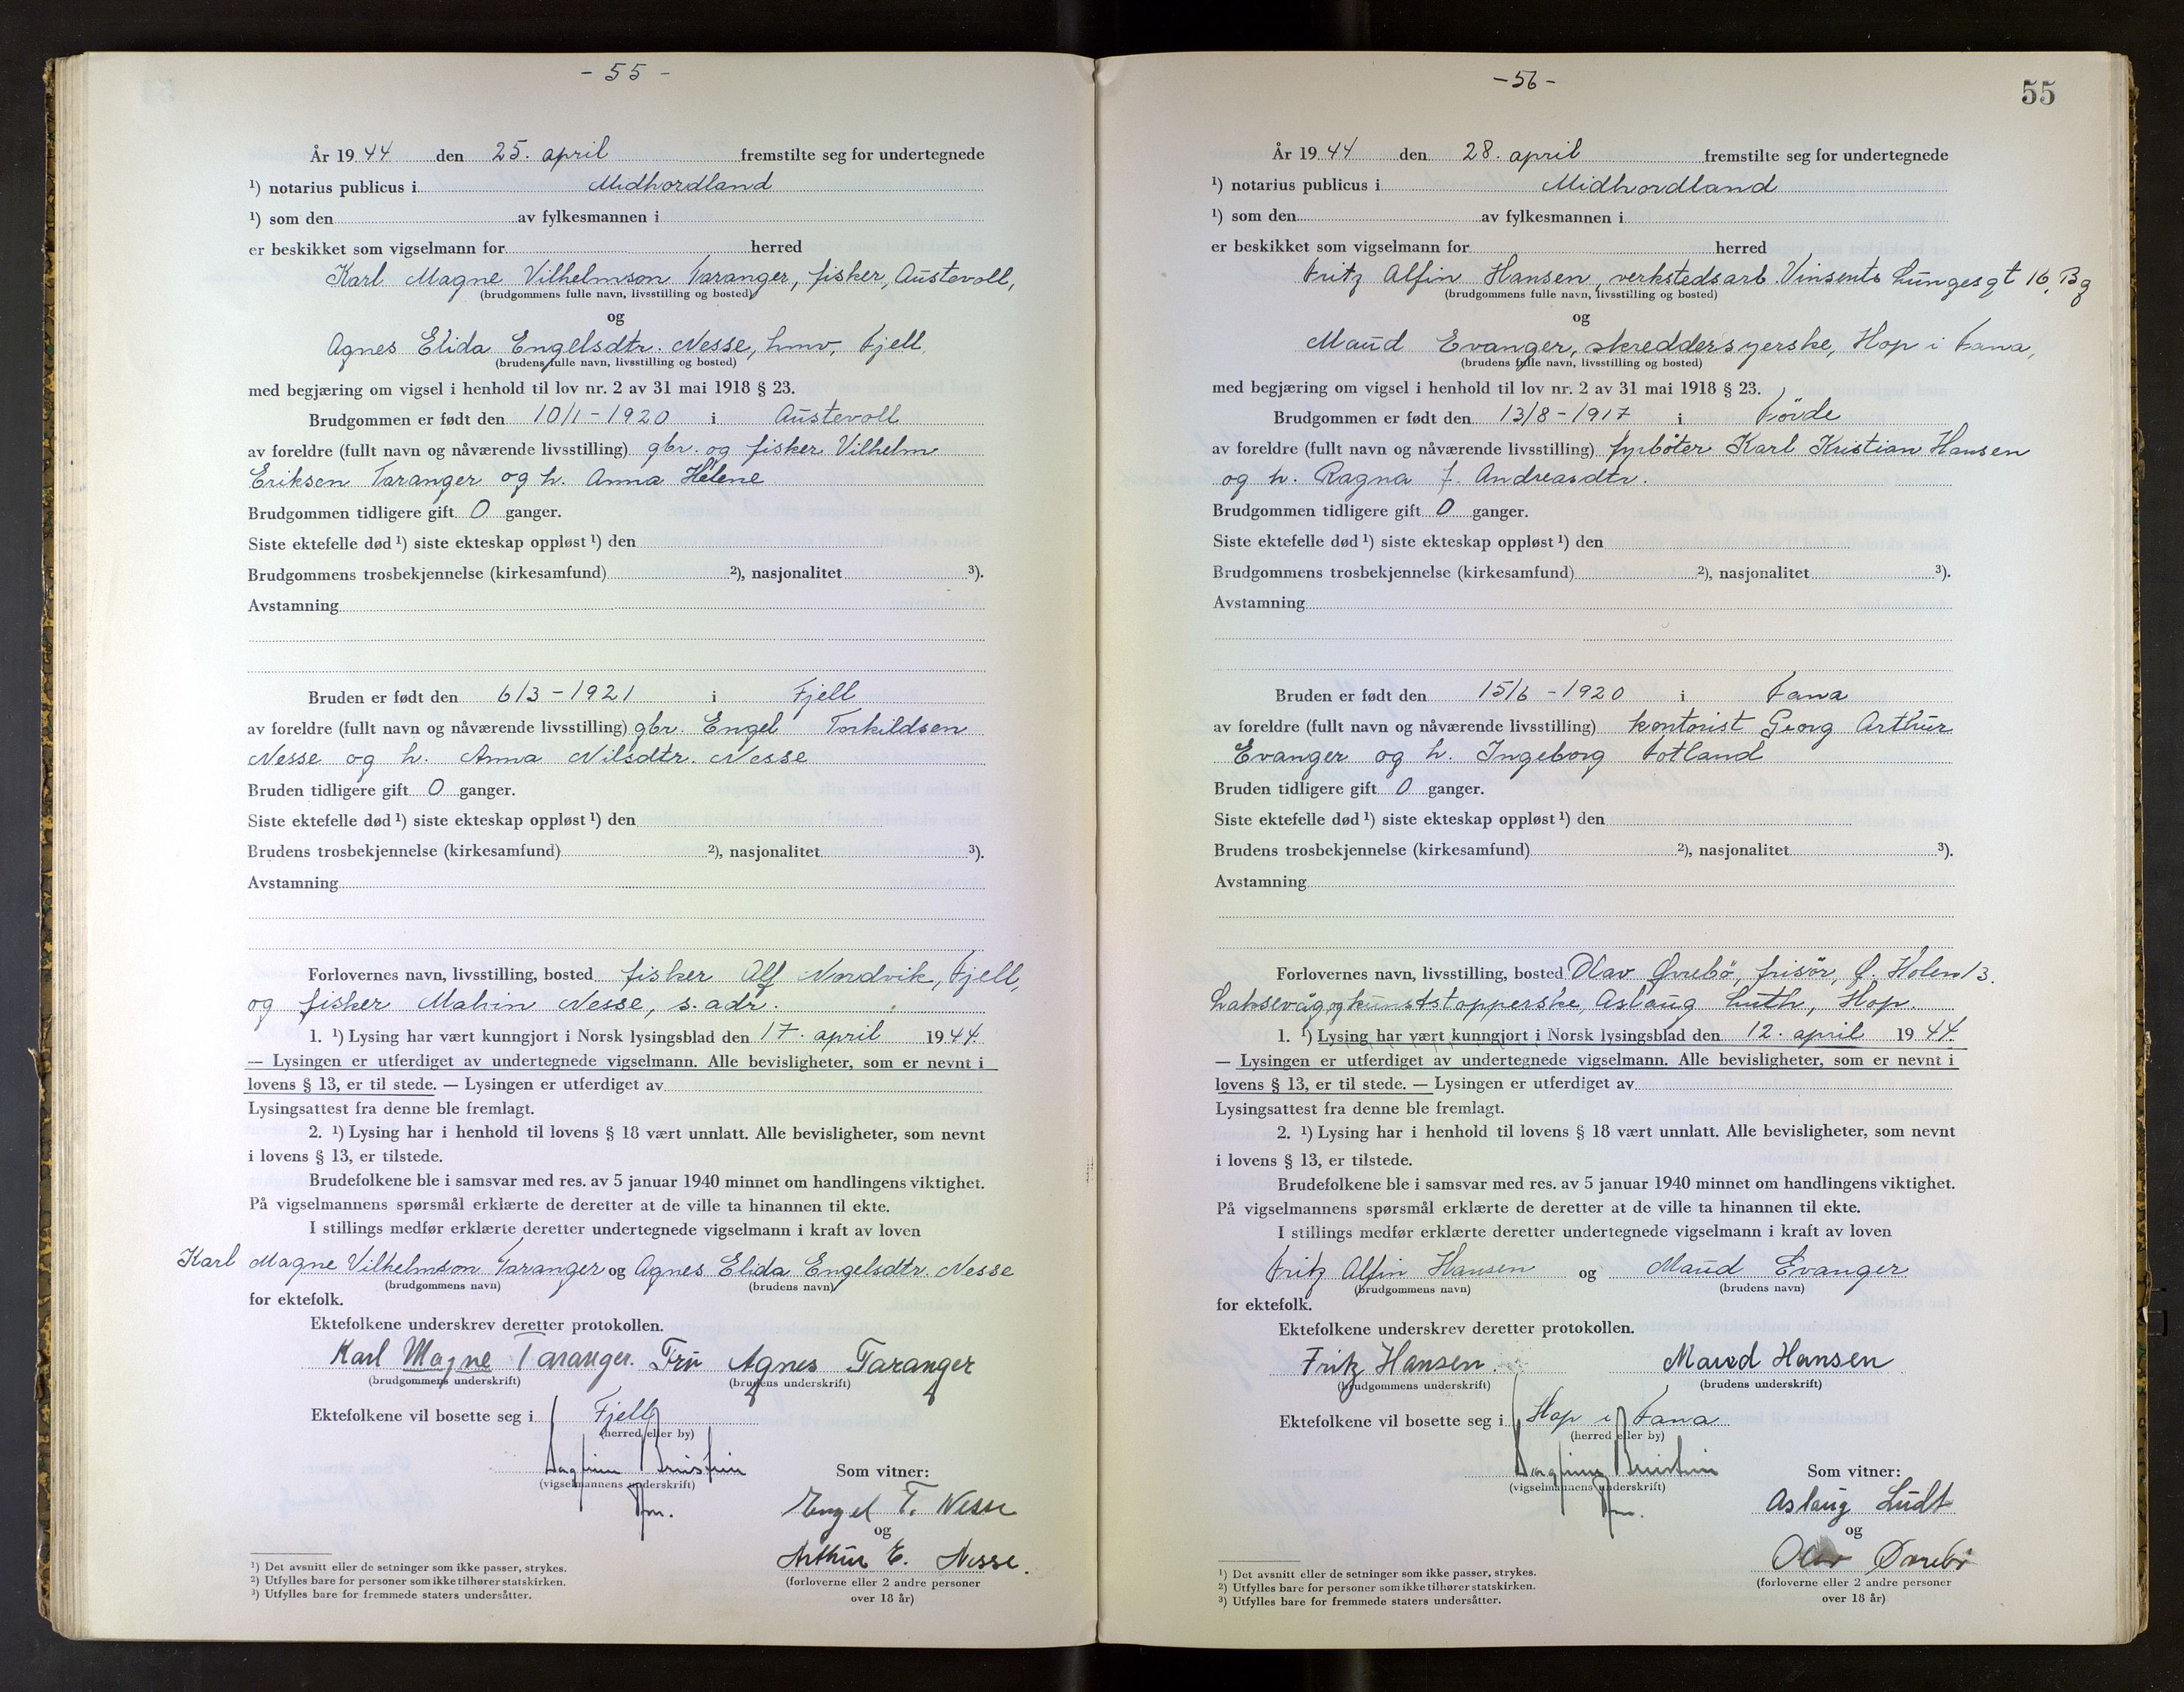 - 55 -
År 19 44 den 25. april fremstilte seg for undertegnede
¹) notarius publicus i Midhordland
¹) som den av fylkesmannen i
er beskikket som vigselmann for herred
Karl Magne Vilhelmson Taranger, fisker, Austevoll,
(brudgommens fulle navn, livsstilling og bosted)
og
Agnes Elida Engelsdtr. Nesse, hmv, Fjell,
(brudens fulle navn, livsstilling og bosted)
med begjæring om vigsel i henhold til lov nr. 2 av 31 mai 1918 § 23.
Brudgommen er født den 10/1 - 1920 i Austevoll
av foreldre (fullt navn og nåværende livsstilling) gbr. og fisker Vilhelm
Eriksen Taranger og h. Anna Helene
Brudgommen tidligere gift 0 ganger.
Siste ektefelle død ¹) siste ekteskap oppløst ¹) den
Brudgommens trosbekjennelse (kirkesamfund) ²), nasjonalitet ³).
Avstamning
Bruden er født den 6/3 - 1921 i Fjell
av foreldre (fullt navn og nåværende livsstilling) gbr. Engel Torkildsen
Nesse og h. Anna Nilsdtr. Nesse
Bruden tidligere gift 0 ganger.
Siste ektefelle død ¹) siste ekteskap oppløst ¹) den
Brudens trosbekjennelse (kirkesamfund) ²), nasjonalitet ³).
Avstamning
Forlovernes navn, livsstilling, bosted fisker Alf Nordvik, Fjell,
og fisker Malvin Nesse, s. adr.
1. ¹) Lysing har vært kunngjort i Norsk lysingsblad den 17. april 19 44.
— Lysingen er utferdiget av undertegnede vigselmann. Alle bevisligheter, som er nevnt i
lovens § 13, er til stede. — Lysingen er utferdiget av
Lysingsattest fra denne ble fremlagt.
2. ¹) Lysing har i henhold til lovens § 18 vært unnlatt. Alle bevisligheter, som nevnt
i lovens § 13, er tilstede.
Brudefolkene ble i samsvar med res. av 5 januar 1940 minnet om handlingens viktighet.
På vigselmannens spørsmål erklærte de deretter at de ville ta hinannen til ekte.
I stillings medfør erklærte deretter undertegnede vigselmann i kraft av loven
Karl Magne Vilhelmson Taranger og Agnes Elida Engelsdtr. Nesse
(brudgommens navn) (brudens navn)
for ektefolk.
Ektefolkene underskrev deretter protokollen.
Karl Magne Taranger. Fru Agnes Taranger
(brudgommens underskrift) (brudens underskrift)
Ektefolkene vil bosette seg i Fjell
(herred eller by)
Som vitner:
(vigselmannens underskrift)
Engel T. Nesse
og
Arthur E. Nesse.
(forloverne eller 2 andre personer
over 18 år)
¹) Det avsnitt eller de setninger som ikke passer, strykes.
²) Utfylles bare for personer som ikke tilhører statskirken.
³) Utfylles bare for fremmede staters undersåtter.
- 56 -
55
År 19 44 den 28. april fremstilte seg for undertegnede
¹) notarius publicus i Midhordland
¹) som den av fylkesmannen i
er beskikket som vigselmann for herred
Fritz Alfin Hansen, verkstedsarb. Vinsents Lungesgt 16, Bg
(brudgommens fulle navn, livsstilling og bosted)
og
Maud Evanger, skreddersyerske, Hop i Fana,
(brudens fulle navn, livsstilling og bosted)
med begjæring om vigsel i henhold til lov nr. 2 av 31 mai 1918 § 23.
Brudgommen er født den 13/8 - 1917 i Förde
av foreldre (fullt navn og nåværende livsstilling) fyrböter Karl Kristian Hansen
og h. Ragna f. Andreasdtr.
Brudgommen tidligere gift 0 ganger.
Siste ektefelle død ¹) siste ekteskap oppløst ¹) den
Brudgommens trosbekjennelse (kirkesamfund) ²), nasjonalitet ³).
Avstamning
Bruden er født den 15/6 - 1920 i Fana
av foreldre (fullt navn og nåværende livsstilling) kontorist Georg Arthur
Evanger og h. Ingeborg Totland
Bruden tidligere gift 0 ganger.
Siste ektefelle død ¹) siste ekteskap oppløst ¹) den
Brudens trosbekjennelse (kirkesamfund) ²), nasjonalitet ³).
Avstamning
Forlovernes navn, livsstilling, bosted Olav Øvrebö, frisör, Holen 13.
Laksevåg og kunststopperske, Aslaug Luth, Hop.
1. ¹) Lysing har vært kunngjort i Norsk lysingsblad den 12. april 19 44.
— Lysingen er utferdiget av undertegnede vigselmann. Alle bevisligheter, som er nevnt i
lovens § 13, er til stede. — Lysingen er utferdiget av
Lysingsattest fra denne ble fremlagt.
2. ¹) Lysing har i henhold til lovens § 18 vært unnlatt. Alle bevisligheter, som nevnt
i lovens § 13, er tilstede.
Brudefolkene ble i samsvar med res. av 5 januar 1940 minnet om handlingens viktighet.
På vigselmannens spørsmål erklærte de deretter at de ville ta hinannen til ekte.
I stillings medfør erklærte deretter undertegnede vigselmann i kraft av loven
Fritz Alfin Hansen og Maud Evanger
(brudgommens navn) (brudens navn)
for ektefolk.
Ektefolkene underskrev deretter protokollen.
Fritz Hansen. Maud Hansen
(brudgommens underskrift) (brudens underskrift)
Ektefolkene vil bosette seg i Hop i Fana
(herred eller by)
Som vitner:
(vigselmannens underskrift)
Aslaug Ludt
og
Olav Øvrebö
(forloverne eller 2 andre personer
over 18 år)
¹) Det avsnitt eller de setninger som ikke passer, strykes.
²) Utfylles bare for personer som ikke tilhører statskirken.
³) Utfylles bare for fremmede staters undersåtter.